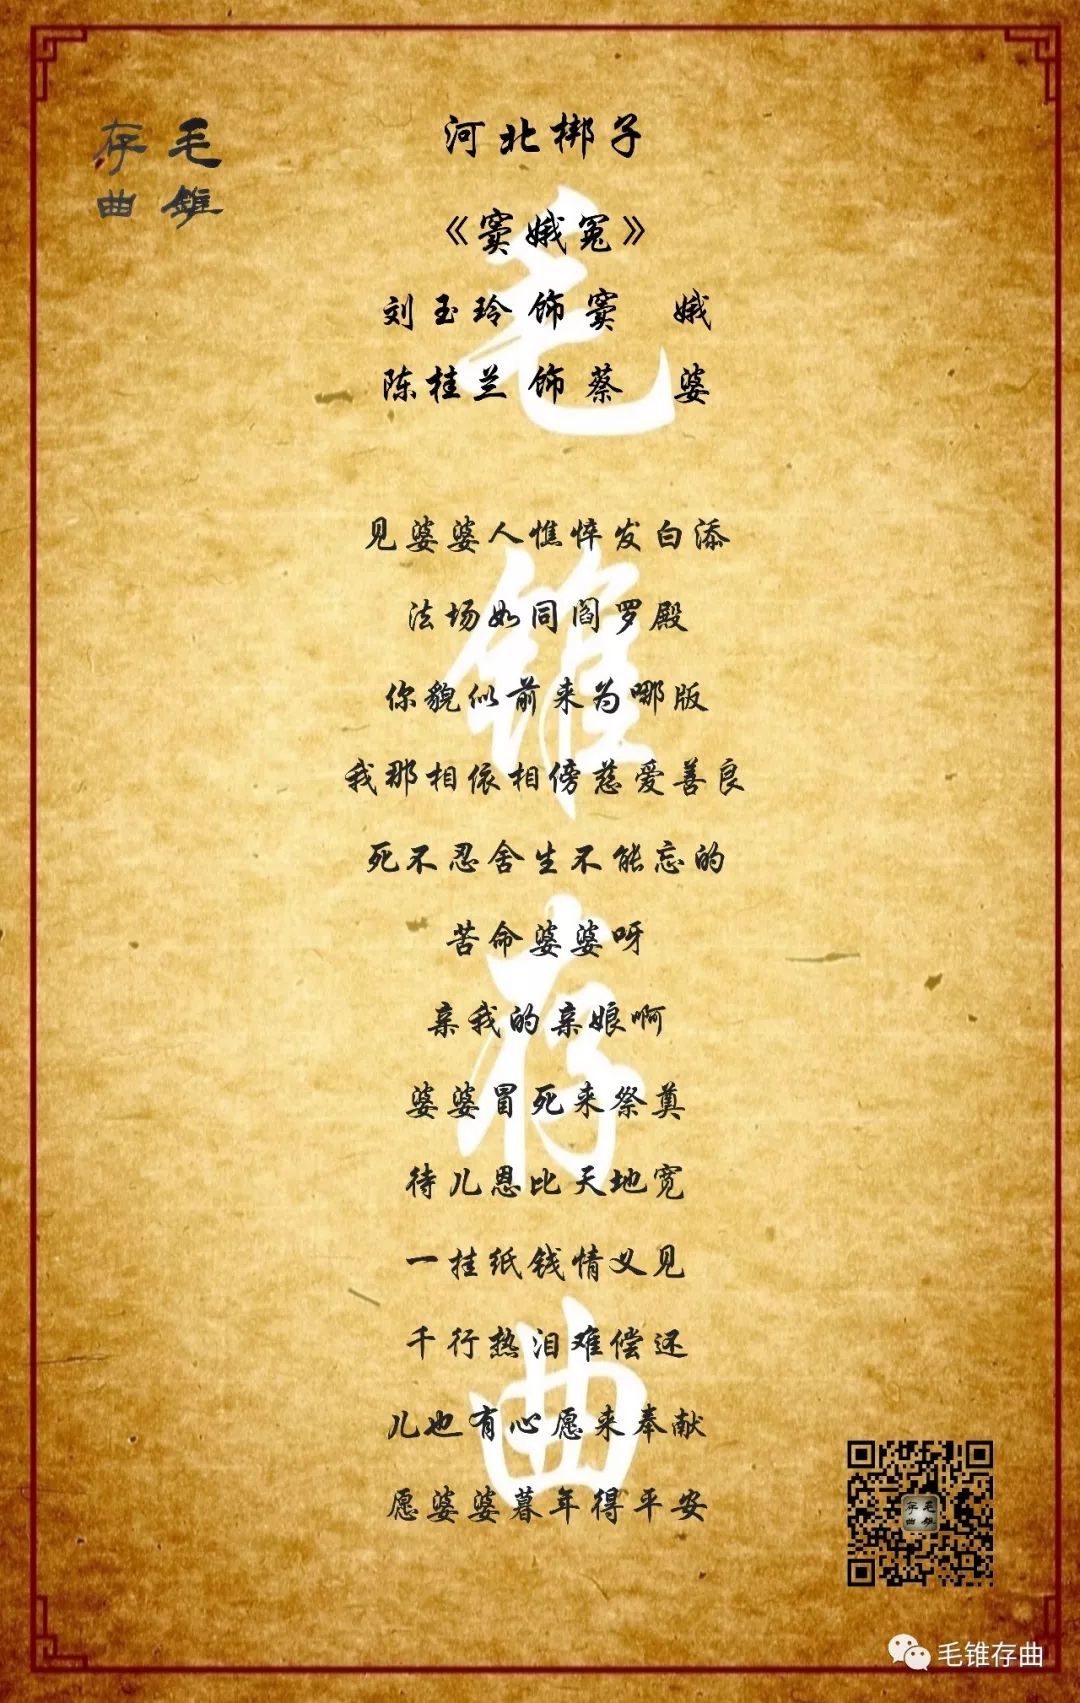 毛锥
存曲
河北梆子
《窦娥冤》
刘玉玲饰窦 娥
陈桂兰饰蔡 婆
见婆婆人憔悴发白添
法场如同阎罗殿
你貌似前来为哪版
我那相依相傍慈爱善良
死不忍舍生不能忘的
苦命婆婆呀
亲我的亲娘啊
婆婆冒死来祭奠
待儿恩比天地宽
一挂纸钱情义见
千行热泪难偿还
儿也有心愿来奉献
愿婆婆暮年得平安
毛锥存曲
毛锥
存曲
毛锥存曲